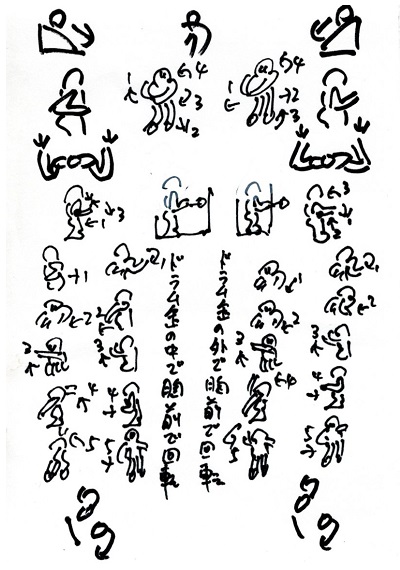 1 4
3
2
4
1 2
3
1 3
3
1
ドラム缶の外で胸前で回転
ドラム缶の中で胸前で回転
1 2 1
2 2
3 3
4 4
5 5
1 2
2 2
3 3
4 4
5 5